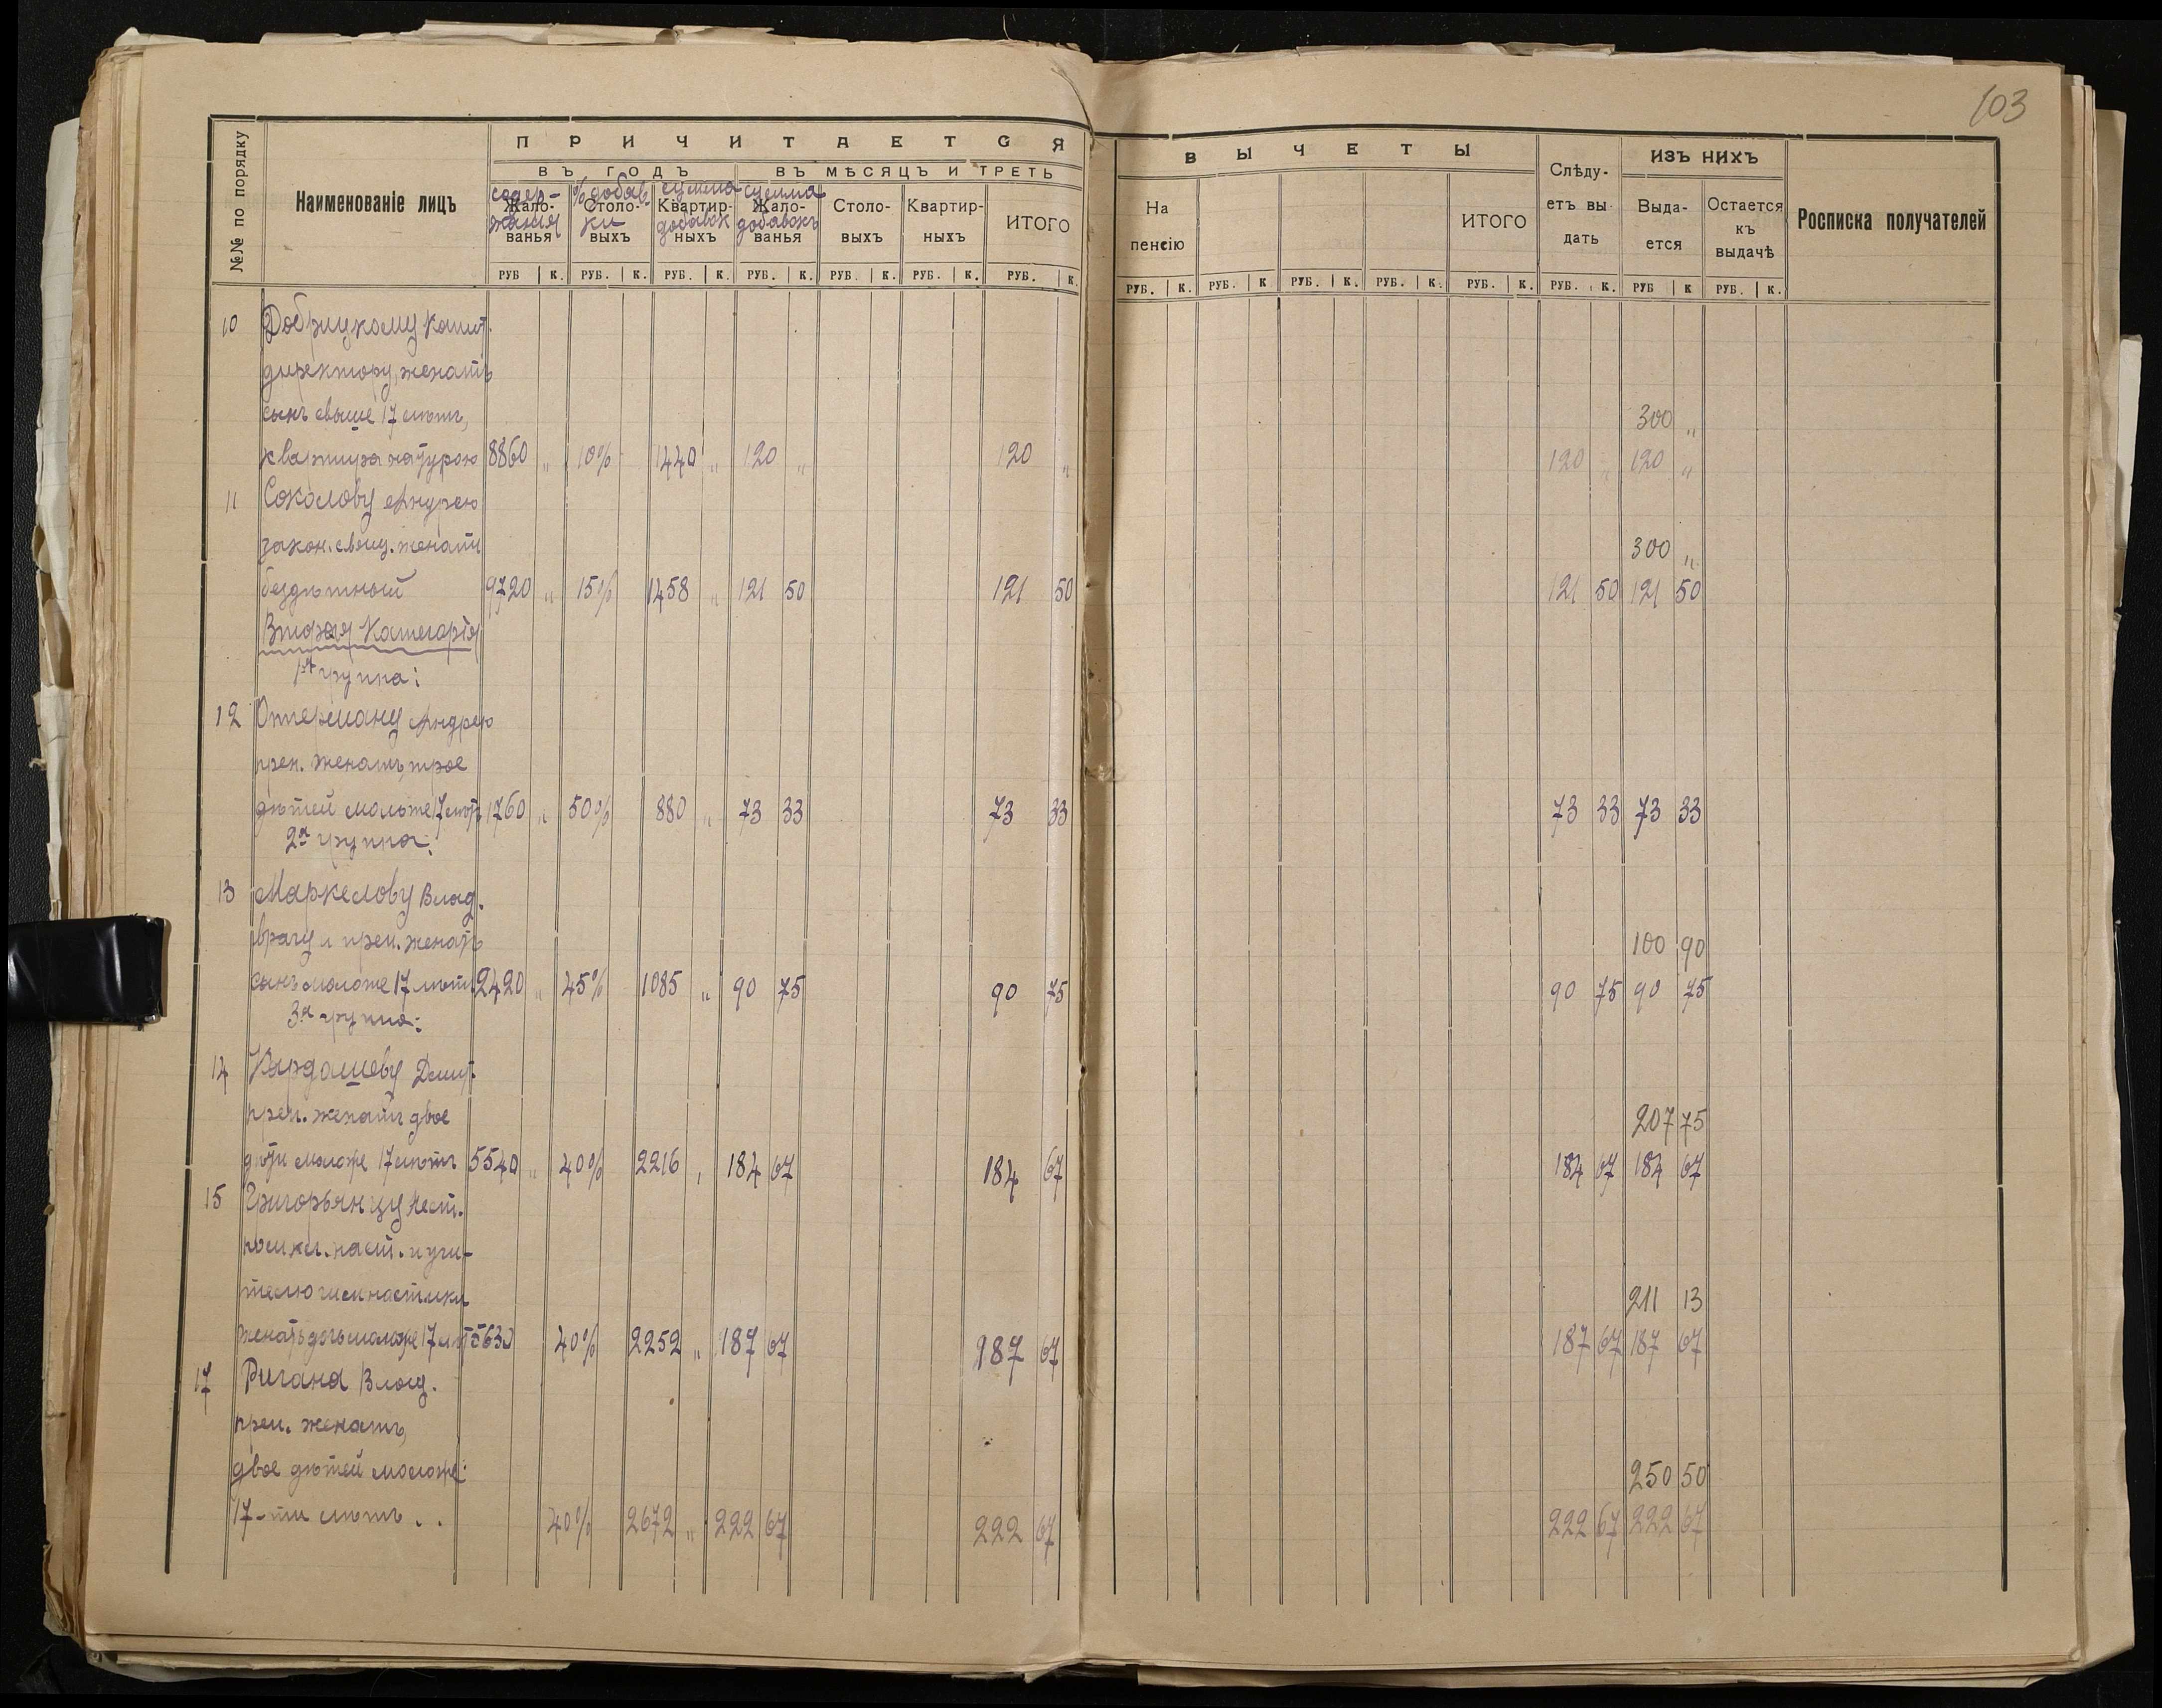 103
П Р И Ч И Т А Е Т С Я
ВЪ ГОДЪ ВЪ МѢСЯЦЪ И ТРЕТЬ
№№ по порядку
Наименованіе лицъ
содержания Жалованья
% добавки Столовыхъ
сумма добавок Квартирныхъ
сумма добавокъ Жалованья
Столовыхъ
Квартирныхъ
ИТОГО
РУБ К. РУБ. К. РУБ. К. РУБ. К. РУБ. К. РУБ. К. РУБ. К.
В Ы Ч Е Т Ы
На пенсію
ИТОГО
Слѣдуетъ выдать
ИЗЪ НИХЪ
Выдается
Остается къ выдачѣ
Росписка получателей
РУБ. К. РУБ. К РУБ. К. РУБ. К. РУБ. К. РУБ. К. РУБ К РУБ. К.
10 Добрицкому
директору, женатъ
сынъ свыше 17 лѣтъ, 300 "
квартира натурою 8860 " 10% 1440 " 120 " 120 " 120 " 120 "
11 Соколову Андрею
закон. свящ. женатъ 300 "
бездѣтный 9720 " 15% 1458 " 121 50 121 50 121 50 121 50
Вторая Категорія
1я группа:
12 Оттерману Андрею
преп. женатъ, трое
дѣтей моложе 17 лѣтъ 1760 " 50% 880 " 73 33 73 33 73 33 73 33
2я группа:
13 Маркелову Влад.
врачу и преп. женатъ 100 90
сынъ моложе 17 лѣтъ 2420 " 45% 1085 " 90 75 90 75 90 75 90 75
3я группа:
14 Кырдашеву Дмит.
преп. женатъ двое 207 75
дѣти моложе 17 лѣтъ 5540 " 40% 2216 " 184 67 184 67 184 67 184 67
15 Григорьянцу Нест.
пом. кл. наст. и учи-
телю гимнастики 211 13
женатъ дочь моложе 17 лѣт 5630 40% 2252 " 187 67 187 67 187 67 187 67
17 Ригана Влад.
преп. женатъ,
двое дѣтей моложе 250 50
17-ти лѣтъ . . 40% 2672 " 222 67 222 67 222 67 222 67